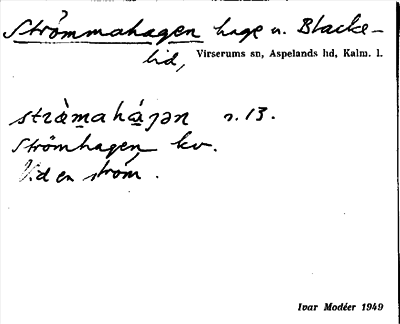 Strömmahagen hage u. Blacke-
lid, Virserums sn, Aspelands hd, Kalm. l.
stràmahájən r. 13.
Strömhagen kv.
Vid en ström.
Ivar Modéer 1949